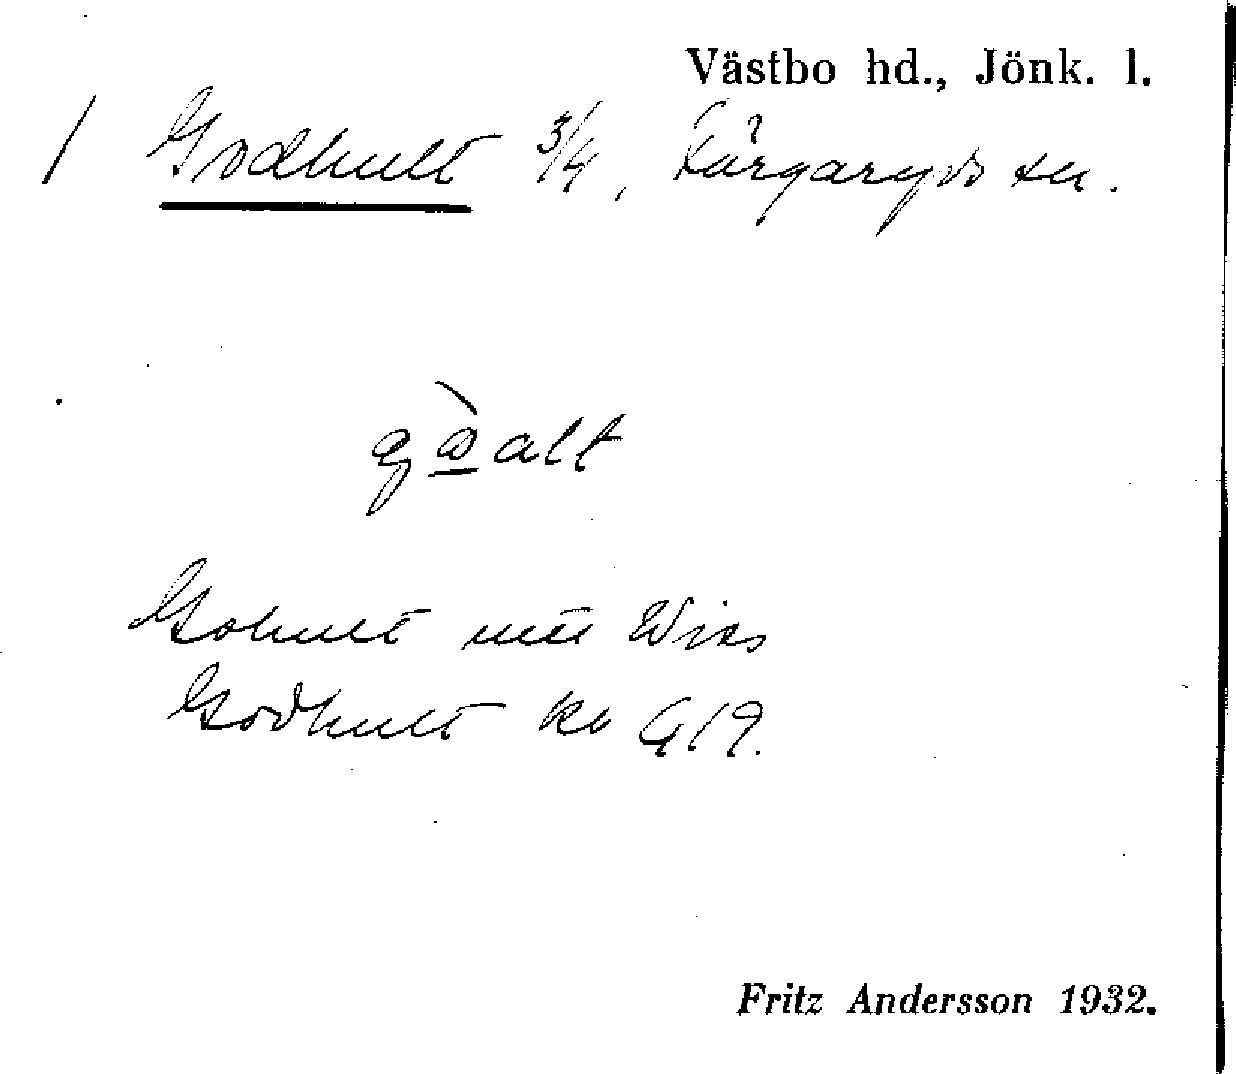 Västbo hd., Jönk. l.
/ Godhult 3/4, Färgaryds sn.
gàalt
Gohult
Godhult kb G 19.
Fritz Andersson 1932.